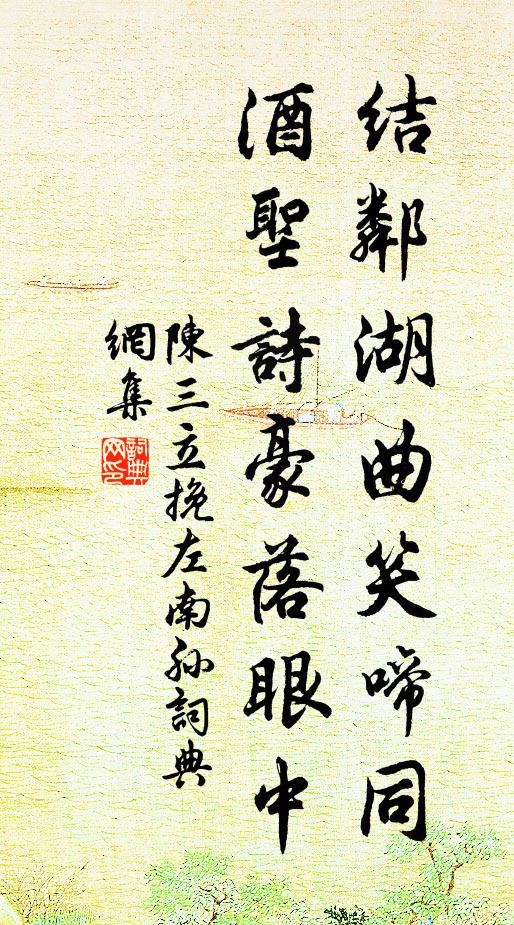 結鄰湖曲笑啼同
酒聖詩豪落眼中
陳三立挽左南孙詞典
網集
詞典
网印